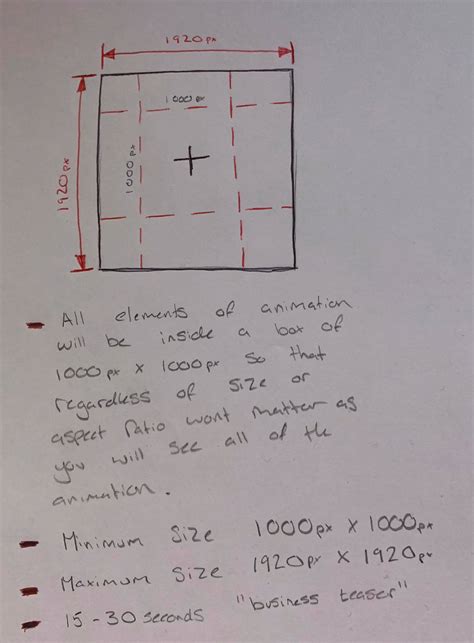 1920px
1000px
1000px
1920px
- All elements of animation
will be inside a box of
1000px x 1000px so that
regardless of size or
aspect ratio wont matter as
you will see all of the
animation.
- Minimum Size 1000px x 1000px
- Maximum Size 1920px x 1920px
- 15-30 seconds "business teaser"